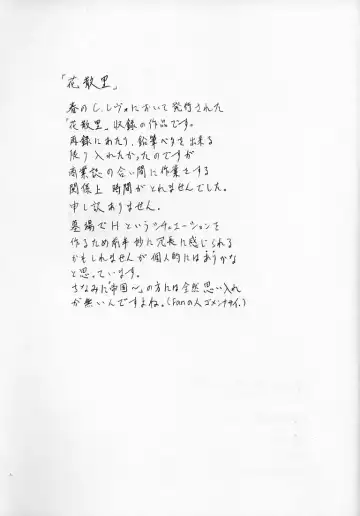 「花散里」
春のC.レヴォにおいて発行された
「花散里」収録の作品です。
再録にあたり、鉛筆ベタを出来る
限り入れたかったのですが
商業誌の合い間に作業をする
関係上 時間がとれませんでした。
申し訳ありません。
墓場でHというシチュエーションを
作るため前半 妙に冗長に感じられる
かもしれませんが個人的にはありかな
と思っています。
ちなみに「帝国〜」の方には全然思い入れ
が無いんですよね。(Fanの人ゴメンナサイ)